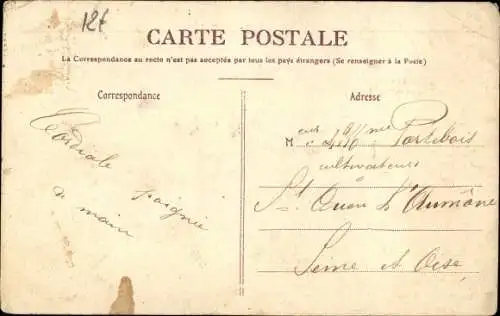 12f
CARTE POSTALE
La Correspondance au recto n'est pas acceptée par tous les pays étrangers (Se renseigner à la Poste)
Correspondance
Cordiale
poignée
de main
Adresse
Meur et Mme Portebois
cultivateurs
St Ouen l'Aumône
Seine et Oise